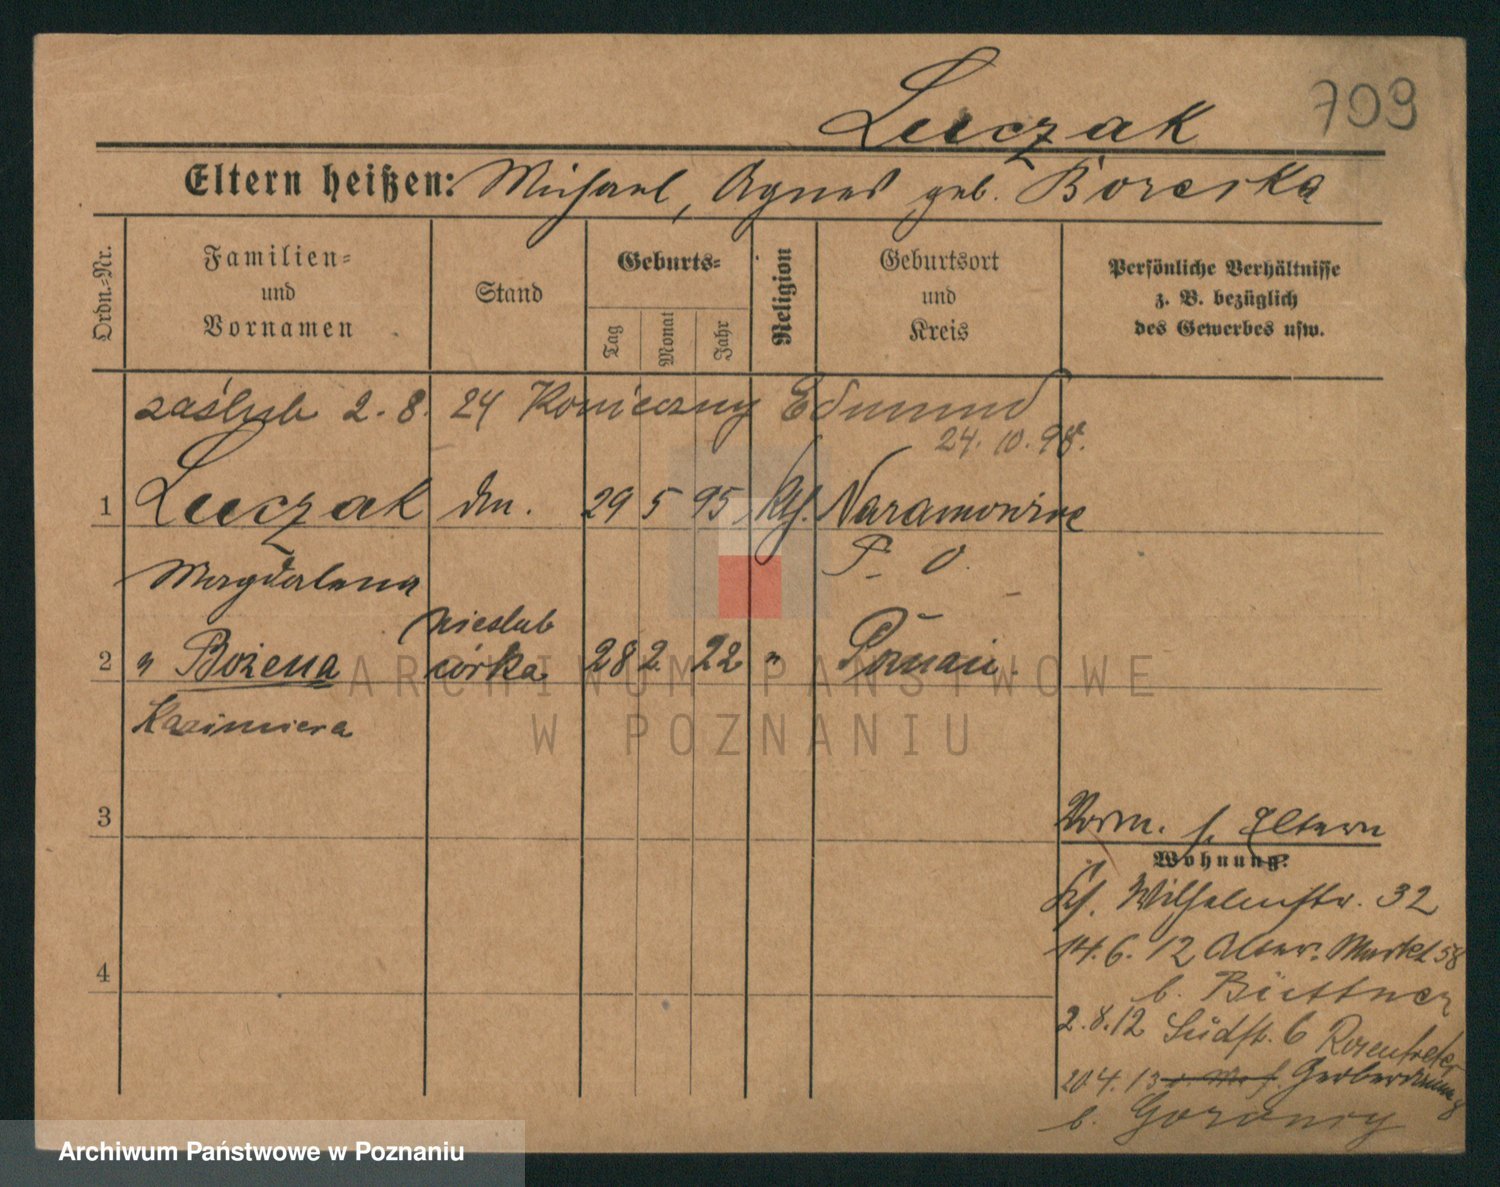 Luczak
709
Eltern heißen: Michael, Agnes geb. Boreska
Ordn.-Nr.
Familien-
und
Vornamen
Stand
Geburts-
Tag
Monat
Jahr
Religion
Geburtsort
und
Kreis
Persönliche Verhältnisse
z. B. bezüglich
des Gewerbes usw.
zaślub 2. 8. 24 Konieczny Edmund
24. 10. 98.
1 Luczak 29 5 95 Kth. Naramowice
P. O.
Magdalena
nieslub
2 " Bożena córka 28 2 22 " Poznań.
Kazimiera
3
4
Vorm. s. Eltern
Wohnung:
Wilhelmstr. 32
14. 6. 12 Alter Markt 58
b. Büttner
2. 8. 12 Südstr. 6 Rosentreter
20 4. 13 Gerberdamm 8
b.
ARCHIWUM PAŃSTWOWE
W POZNANIU
Archiwum Państwowe w Poznaniu